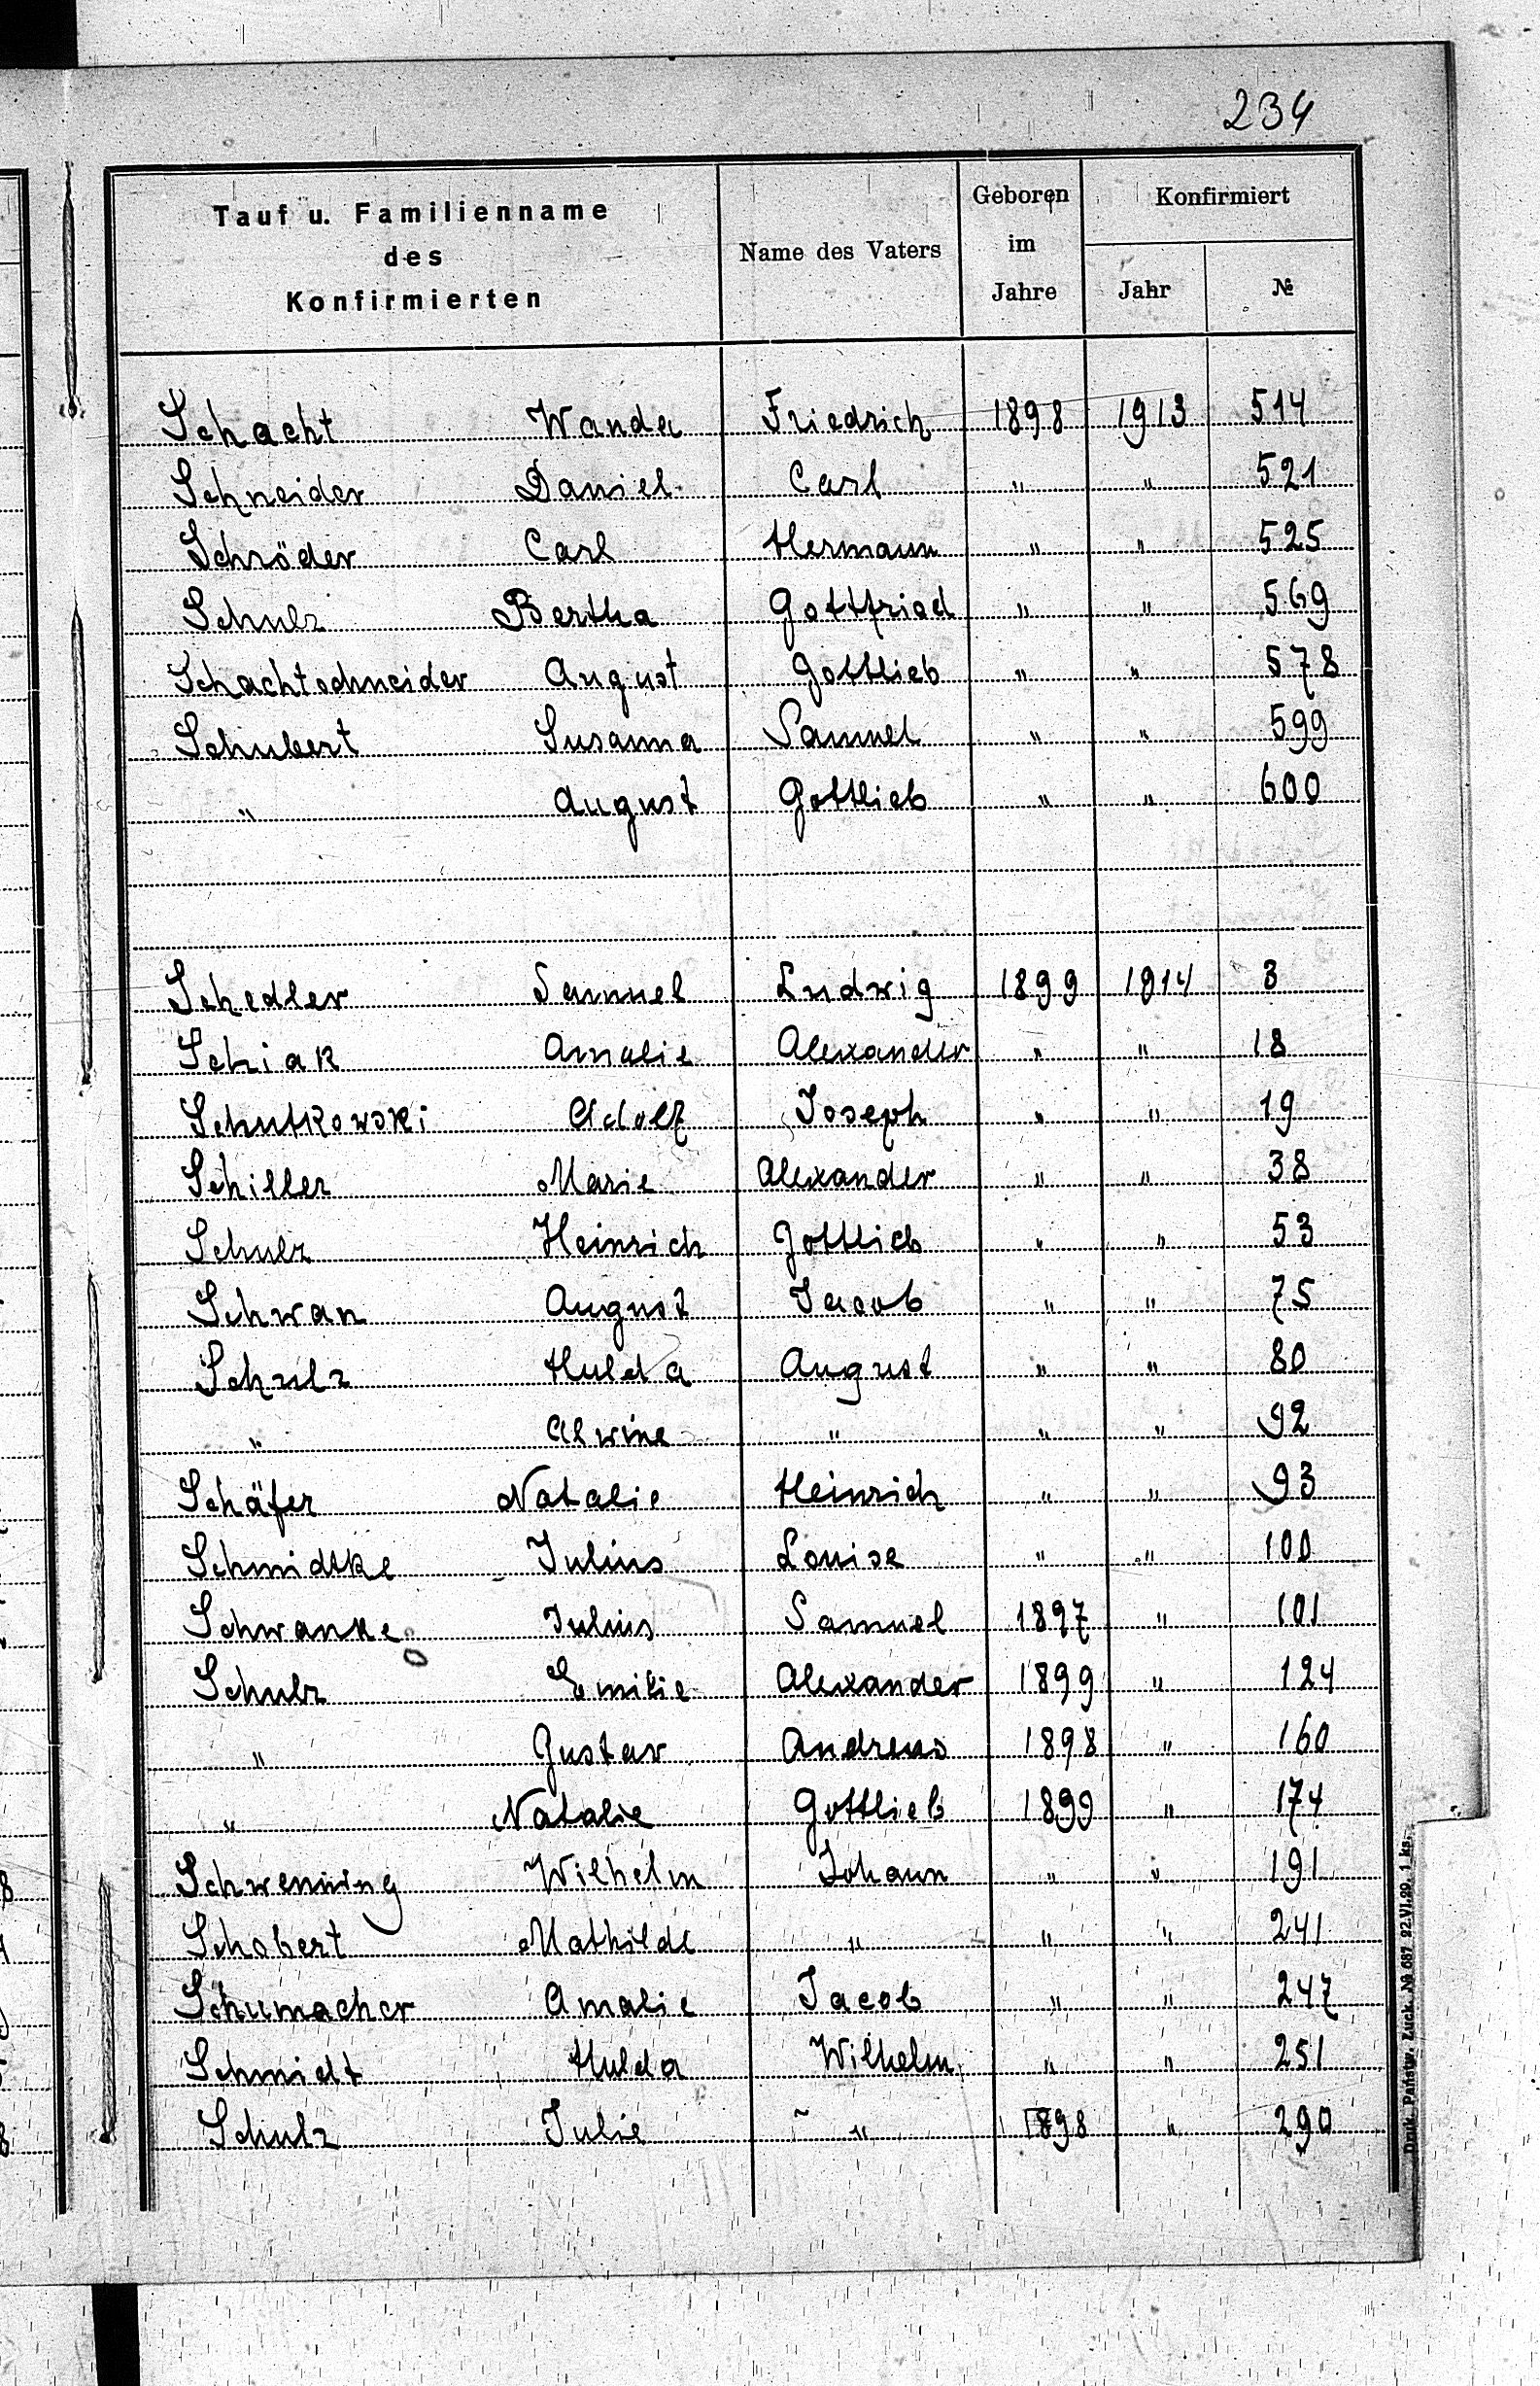 234
Tauf u. Familienname des Konfirmierten Name des Vaters Geboren im Jahre Konfirmiert Jahr №
Schacht Wanda Friedrich 1898 1913 514
Schneider Daniel Carl " " 521
Schröder Carl Hermann " " 525
Schulz Bertha Gottfried " " 569
Schachtschneider August Gottlieb " " 578
Schubert Susanna Samuel " " 599
" August Gottlieb " " 600
Schedler Samuel Ludwig 1899 1914 3
Schiak Amalie Alexander " " 18
Schutkowski Adolf Joseph " " 19
Schiller Marie Alexander " " 38
Schulz Heinrich Gottlieb " " 53
Schwan August Jacob " " 75
Schulz Hulda August " " 80
" Alwine " " " 92
Schäfer Natalie Heinrich " " 93
Schmidtke Julius Louise " " 100
Schwanke Julius Samuel 1897 " 101
Schulz Emilie Alexander 1899 " 124
" Gustav Andreas 1898 " 160
" Natalie Gottlieb 1899 " 174
Schwenning Wilhelm Johann " " 191
Schobert Mathilde " " " 241
Schumacher Amalie Jacob " " 247
Schmidt Hulda Wilhelm " " 251
Schulz Julie " 1898 " 290
Druk. Państw. Łuck. № 687 22.VI.29. 1 ks.